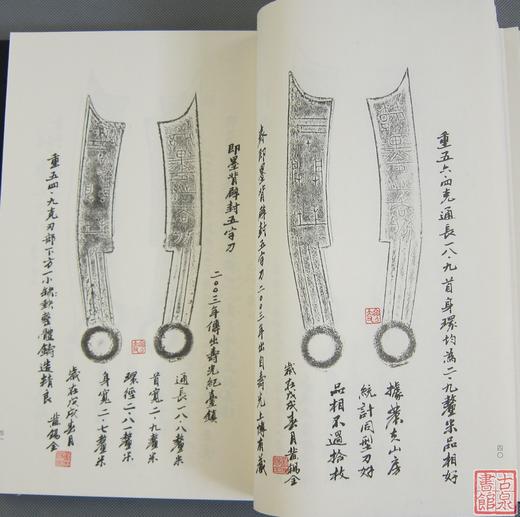 重五六·四克通長一八·九首身環均為二·九釐米品相好
據葉贵山房
統計同型刀好
品相不過拾枚
歲在戊戌春月
齊即墨背闢封五字刀二〇〇三年出自壽光上傳有藏
四〇
即墨背闢封五字刀
二〇〇三年傳出壽光紀臺鎮
通長一八·八釐米
首寬二·九釐米
環徑二·八釐米
身寬二·七釐米
歲在戊戌春月
重五四·九克刃部下方一小缺缺整體鑄造精良
古泉書館